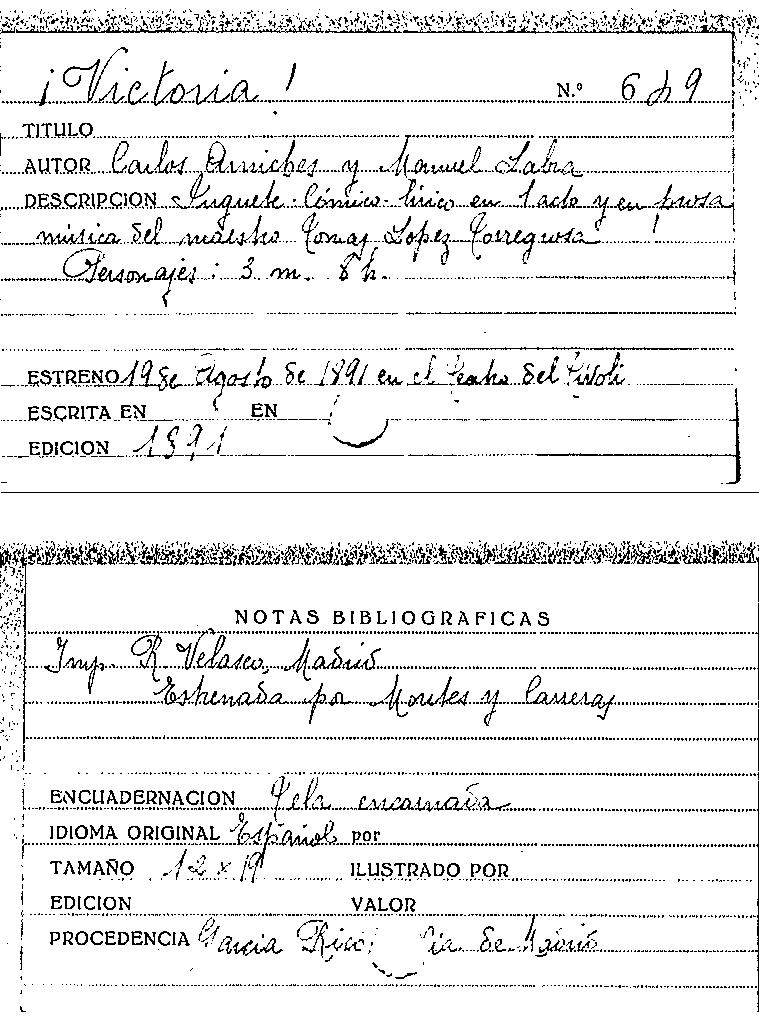 ¡Victoria!
N.º 6
TITULO
AUTOR Carlos Arniches y Manuel Labra
DESCRIPCION Juguete-Cómico-lírico en 1 acto y en prosa
música del maestro Tomas Lopez Torregrosa
Personajes: 3 m. 8 h.
ESTRENO 19 de Agosto de 1891 en el Teatro del Tivoli
ESCRITA EN EN
EDICION 1891
NOTAS BIBLIOGRAFICAS
Imp. R. Velasco, Madrid
Estrenada por Montes y Carreras
ENCUADERNACION Tela encarnada
IDIOMA ORIGINAL Español por
TAMAÑO 12 x 19 ILUSTRADO POR
EDICION VALOR
PROCEDENCIA Garcia Rico, de Madrid